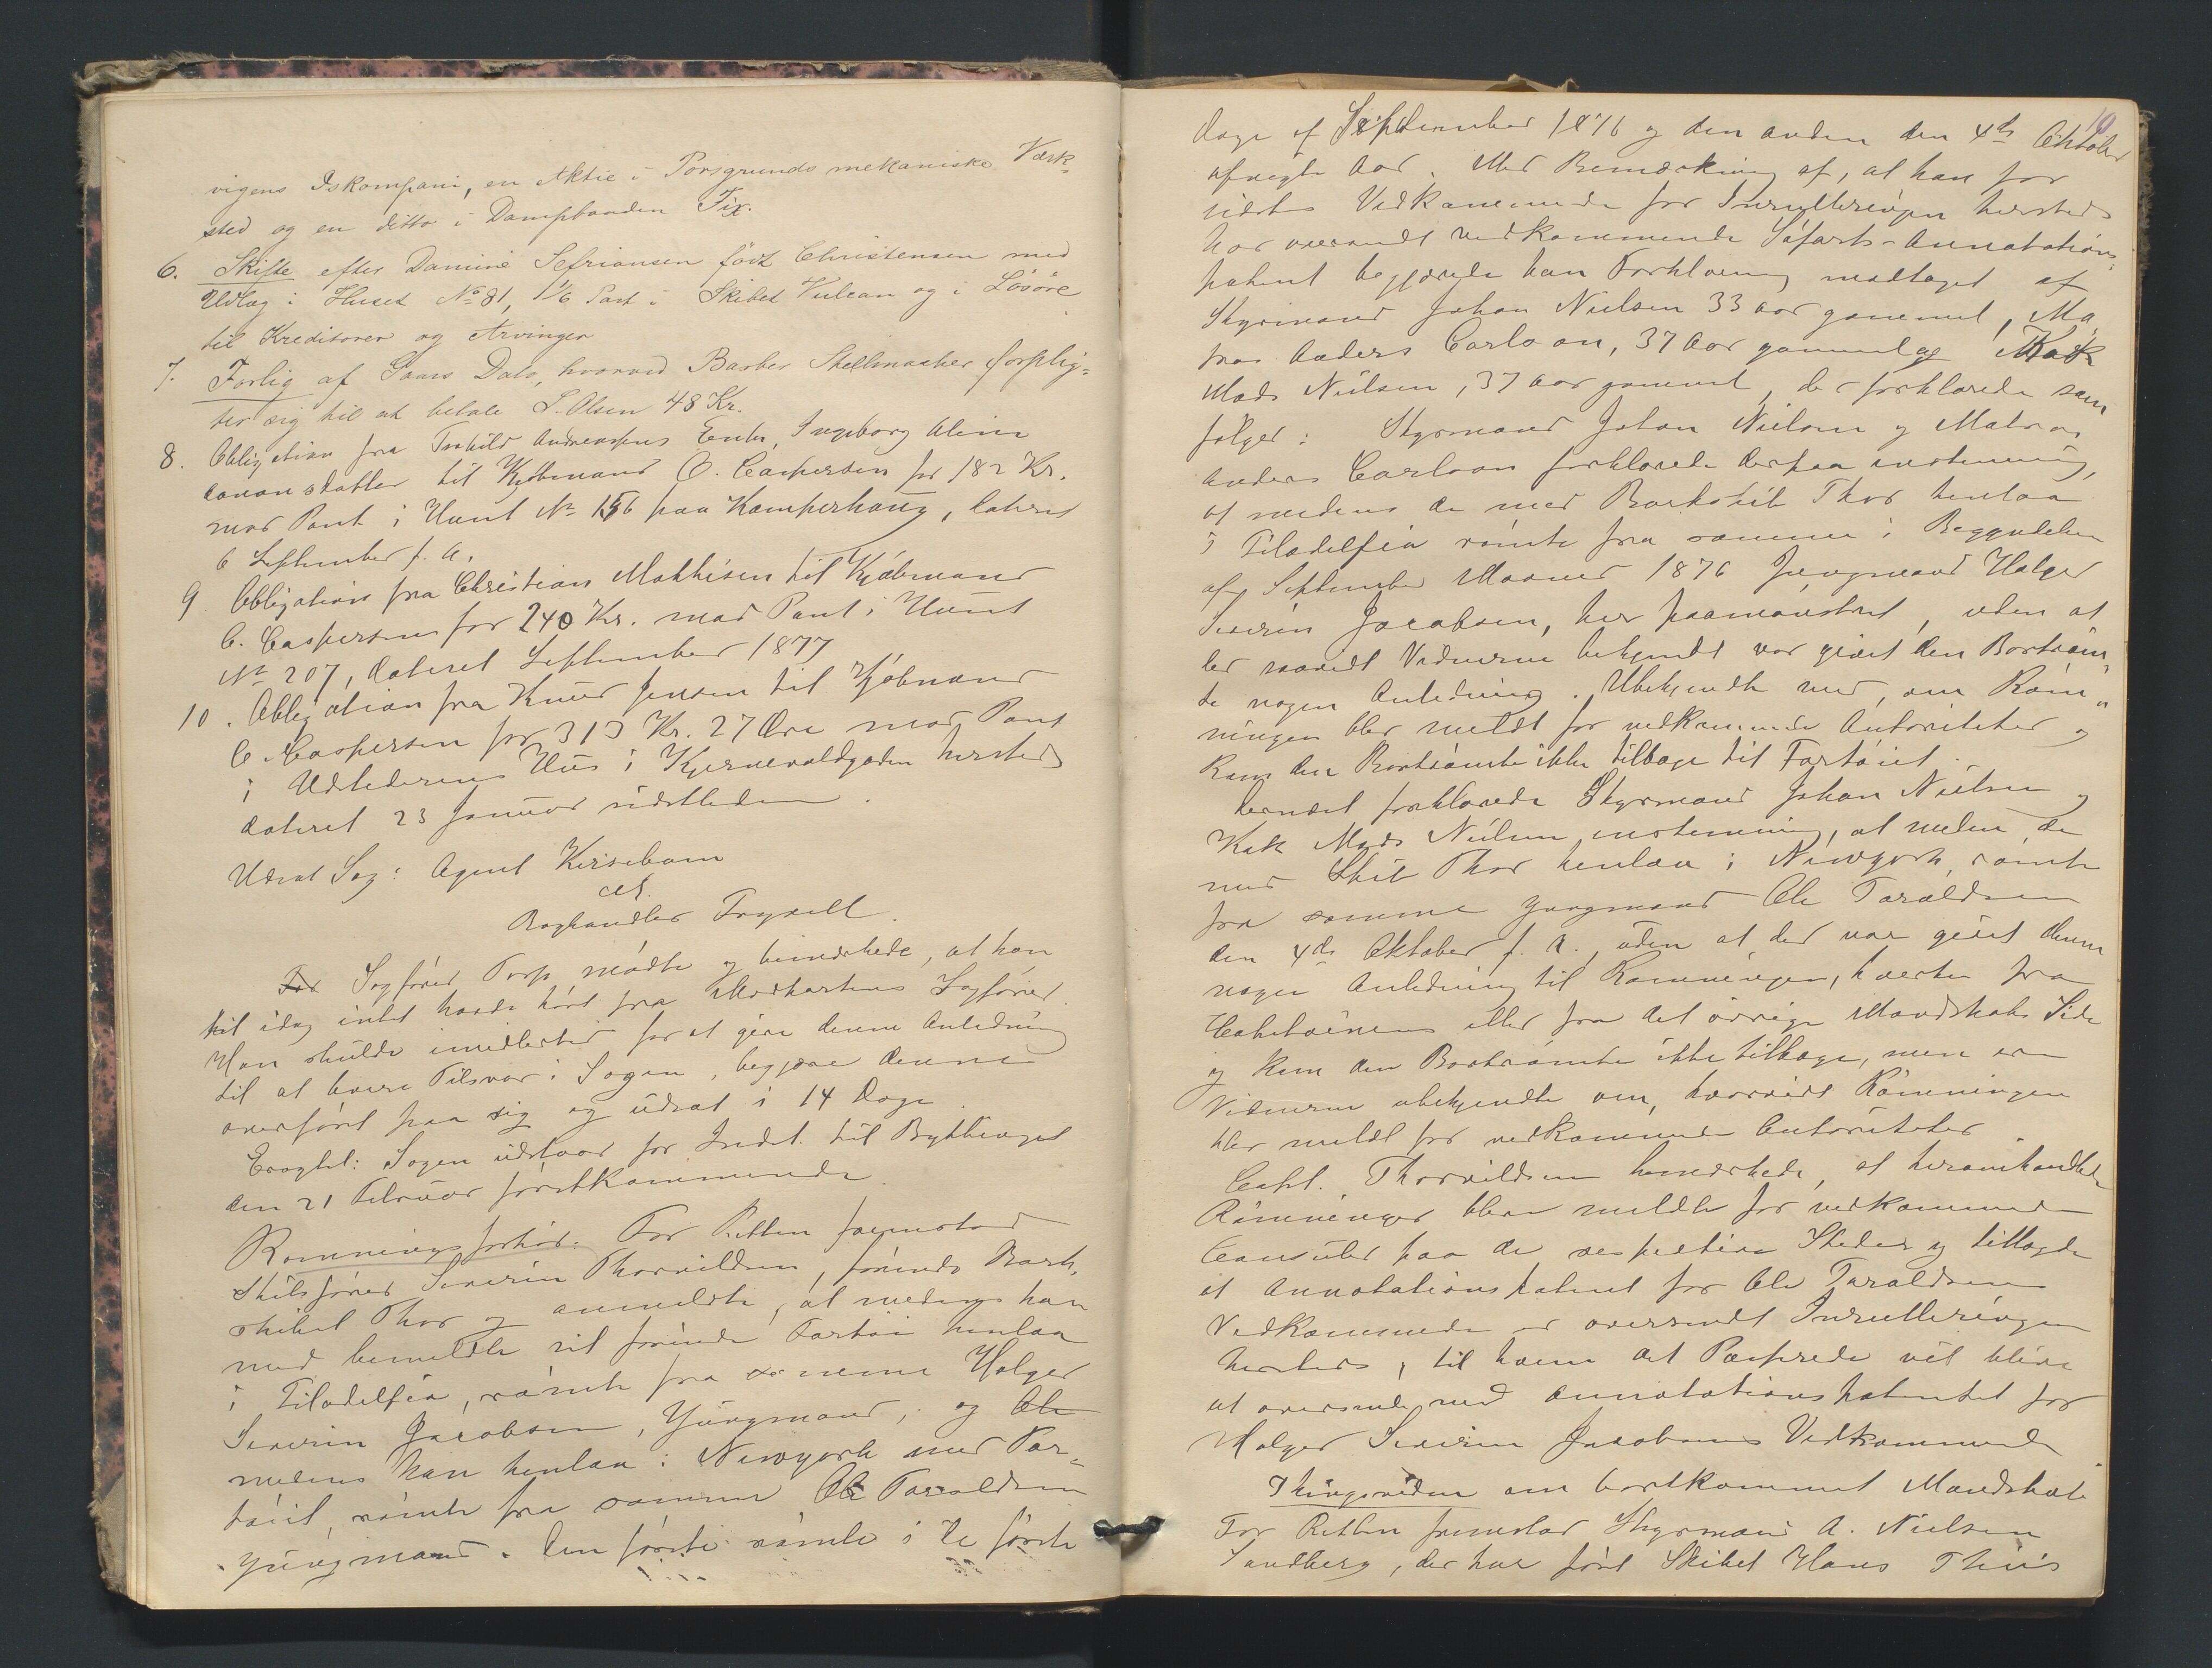 vigens Iskompani, en Aktie i Porsgrunds mekaniske Værk-
sted og en ditto i Dampbaaden Fix.
6. Skifte efter Damine Sefriansen født Christensen med
Udlæg i Huset No 81, 1/6 Part i Skibet Vulcan og i Løsøre
til Kreditorer og Arvinger
7. Forlig af Dato, hvorved Barber Stellmacher forplig-
ter sig til at betale S. Olsen 48 Kr.
8. Obligation fra Andreassens Enke, Ingeborg Aline
til Kjøbmand C. Caspersen for 182 Kr.
mod Pant i Huset No 156 paa Kamperhaug, dateret
6 September f. A.
9. Obligation fra Christian Mathisen til Kjøbmand
C. Caspersen for 240 Kr. mod Pant i Huset
No 207, dateret September 1877
10. Obligation fra Knud Jensen til Kjøbmand
C. Caspersen for 313 Kr. 27 Øre mod Pant
i Udstederens Huus i hersteds
dateret 23 Januar sidstleden.
Udsat Sag: Agent Kirsebom
ctr.
Boghandler Frysell.
Sagfører Torp mødte og bemærkede, at han
til idag intet havde hørt fra Modpartens Sagfører.
Han skulde imidlertid for at give denne Anledning
til at levere Tilsvar i Sagen, begjære denne
overført paa sig og udsat i 14 Dage.
Eragtet: Sagen udstaar for Indst. til Bythinget
den 21 Februar førstkommende.
Rømningsforhør. For Retten fremstod
Skibsfører Severin Thorvildsen, førende Bark-
skibet Thor og anmeldte, at medens han
med bemeldte sit førende Fartøi henlaa
i Filadelfia, rømte fra samme Holger
Severin Jacobsen, Jungmand, og Ole
medens han henlaa i Newyork med Far-
tøiet, rømte fra samme Ole Taraldsen
Jungmand. Den første rømte i de første
10
Dage af September 1876 og den anden den 4de Oktober
afvigte Aar. Med Bemærkning af, at han for
sidstes Vedkommende for Inrulleringen hersteds
har oversendt vedkommende Søfarts-Annotations-
patent begjærede han Forklaring modtaget af
Styrmand Johan Nielsen 33 Aar gammel, Ma-
tros Anders Carlson, 37 Aar gammel og Kok
Mads Nielsen, 37 Aar gammel, der forklarede som
følger: Styrmand Johan Nielsen og Matros
Anders Carlson forklarede derpaa enstemmig,
at medens de med Barkskib Thor henlaa
i Filadelfia rømte fra samme i Begyndelsen
af September Maaned 1876 Jungmand Holger
Severin Jacobsen, her paamønstret, uden at
der saavidt Vidnerne bekjendt var givet den Bortrøm-
te nogen Anledning. Ubekjendte med, om Røm-
ningen blev meldt for vedkommende Autoriteter og
kom den Bortrømte ikke tilbage til Fartøiet.
Dernæst forklarede Styrmand Johan Nielsen og
Kok Mads Nielsen enstemmig, at medens de
med Skib Thor henlaa i Newyork, rømte
fra samme Jungmand Ole Taraldsen
den 4de Oktober f. A., uden at der var givet denne
nogen Anledning til Rømningen, hverken fra
Capitainens eller fra det øvrige Mandskabs Side
og kom den Bortrømte ikke tilbage, men ere
Vidnerne ubekjendte om, hvorvidt Rømningen
blev meldt for vedkommende Autoriteter.
Capt. Thorvildsen bemærkede, at heromhandlede
Rømninger blev meldte for vedkommende
Consuler paa de respektive Steder og tillagde
at Annotationspatent for Ole Taraldsens
Vedkommende er oversendt Inrulleringen
hersteds, til hvem det Passerede vil blive
at oversende med Annotationspatentet for
Holger Severin Jacobsens Vedkommende
Thingsvidne om bortkommet Mandskab
For Retten fremstod Styrmand A. Nielsen
Sandberg, der har ført Skibet Hans Thiis